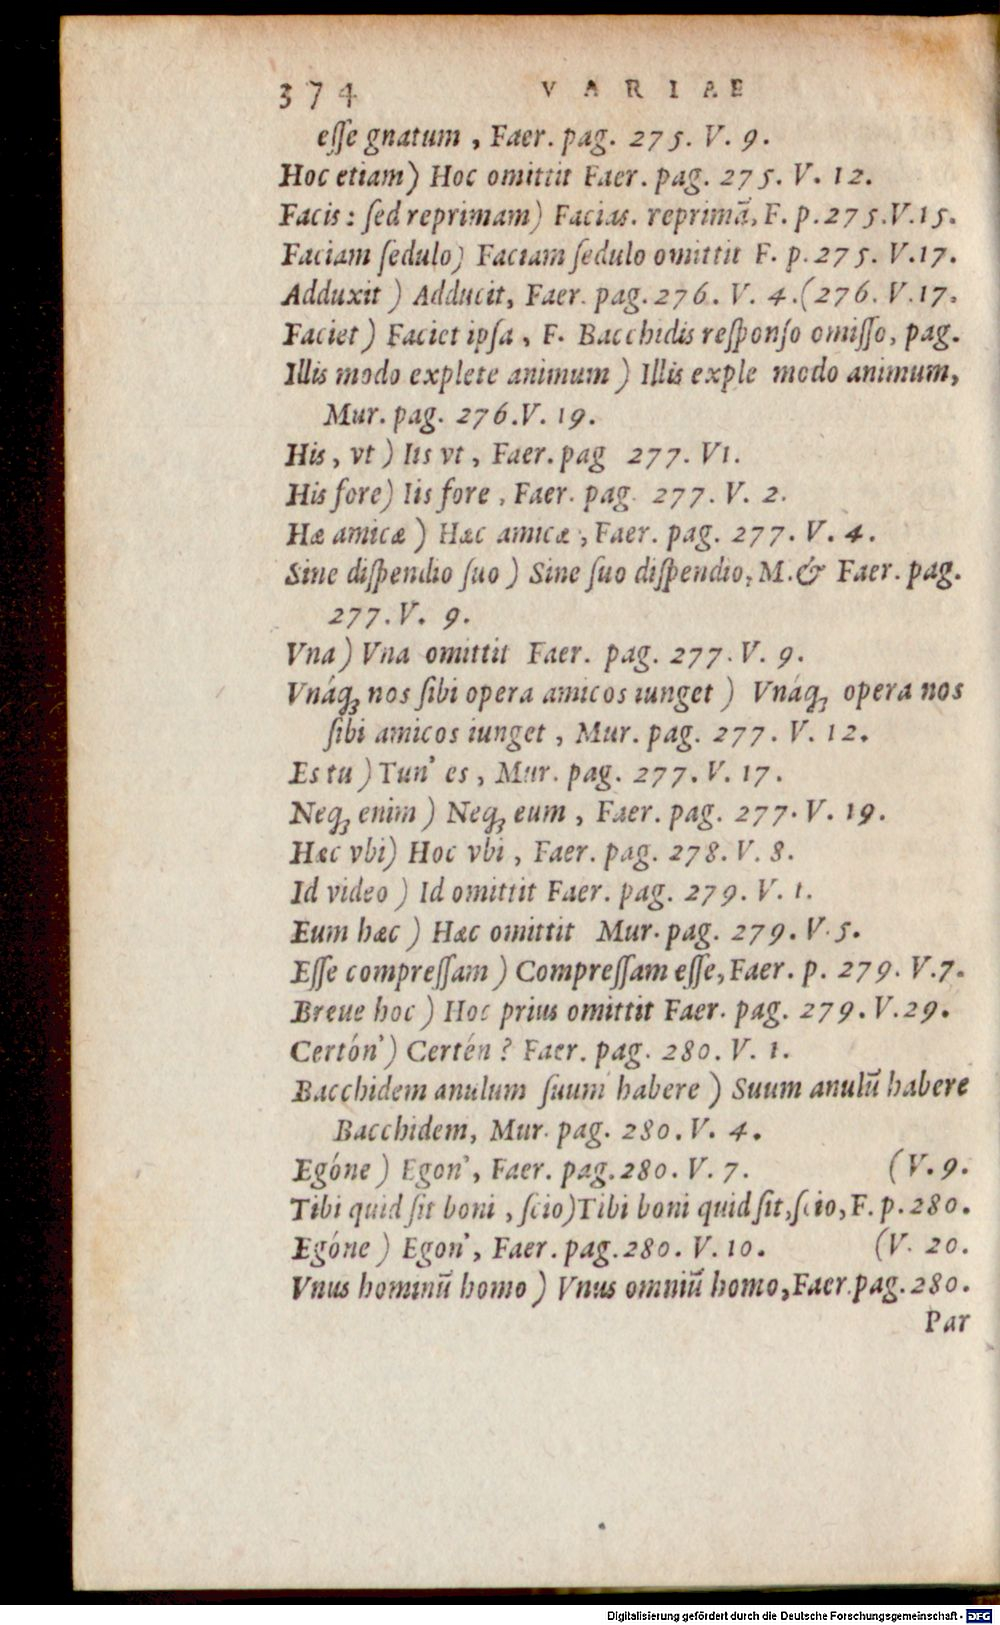 374 VARIAE
esse gnatum, Faer. pag. 275. V. 9.
Hoc etiam) Hoc omittit Faer. pag. 275. V. 12.
Facis: sed reprimam) Facias. reprimā, F. p. 275. V. 15.
Faciam sedulo) Faciam sedulo omittit F. p. 275. V. 17.
Adduxit) Adducit, Faer. pag. 276. V. 4. (276. V. 17.
Faciet) Faciet ipsa, F. Bacchidis responso omisso, pag.
Illis modo explete animum) Illis exple modo animum,
Mur. pag. 276. V. 19.
His, vt) Iis vt, Faer. pag 277. V1.
His fore) Iis fore, Faer. pag. 277. V. 2.
Hæ amicæ) Hæc amicæ, Faer. pag. 277. V. 4.
Sine dispendio suo) Sine suo dispendio, M. & Faer. pag.
277. V. 9.
Vna) Vna omittit Faer. pag. 277. V. 9.
Vnáqꝫ nos sibi opera amicos iunget) Vnáqꝫ opera nos
sibi amicos iunget, Mur. pag. 277. V. 12.
Es tu) Tun' es, Mur. pag. 277. V. 17.
Neqꝫ enim) Neqꝫ eum, Faer. pag. 277. V. 19.
Hæc vbi) Hoc vbi, Faer. pag. 278. V. 8.
Id video) Id omittit Faer. pag. 279. V. 1.
Eum hæc) Hæc omittit Mur. pag. 279. V. 5.
Esse compressam) Compressam esse, Faer. p. 279. V. 7.
Breue hoc) Hoc prius omittit Faer. pag. 279. V. 29.
Certón') Certén? Faer. pag. 280. V. 1.
Bacchidem anulum suum habere) Suum anulū habere
Bacchidem, Mur. pag. 280. V. 4.
Egóne) Egon', Faer. pag. 280. V. 7. (V. 9.
Tibi quid sit boni, scio) Tibi boni quid sit, scio, F. p. 280.
Egóne) Egon', Faer. pag. 280. V. 10. (V. 20.
Vnus hominū homo) Vnus omniū homo, Faer. pag. 280.
Par
Digitalisierung gefördert durch die Deutsche Forschungsgemeinschaft - DFG